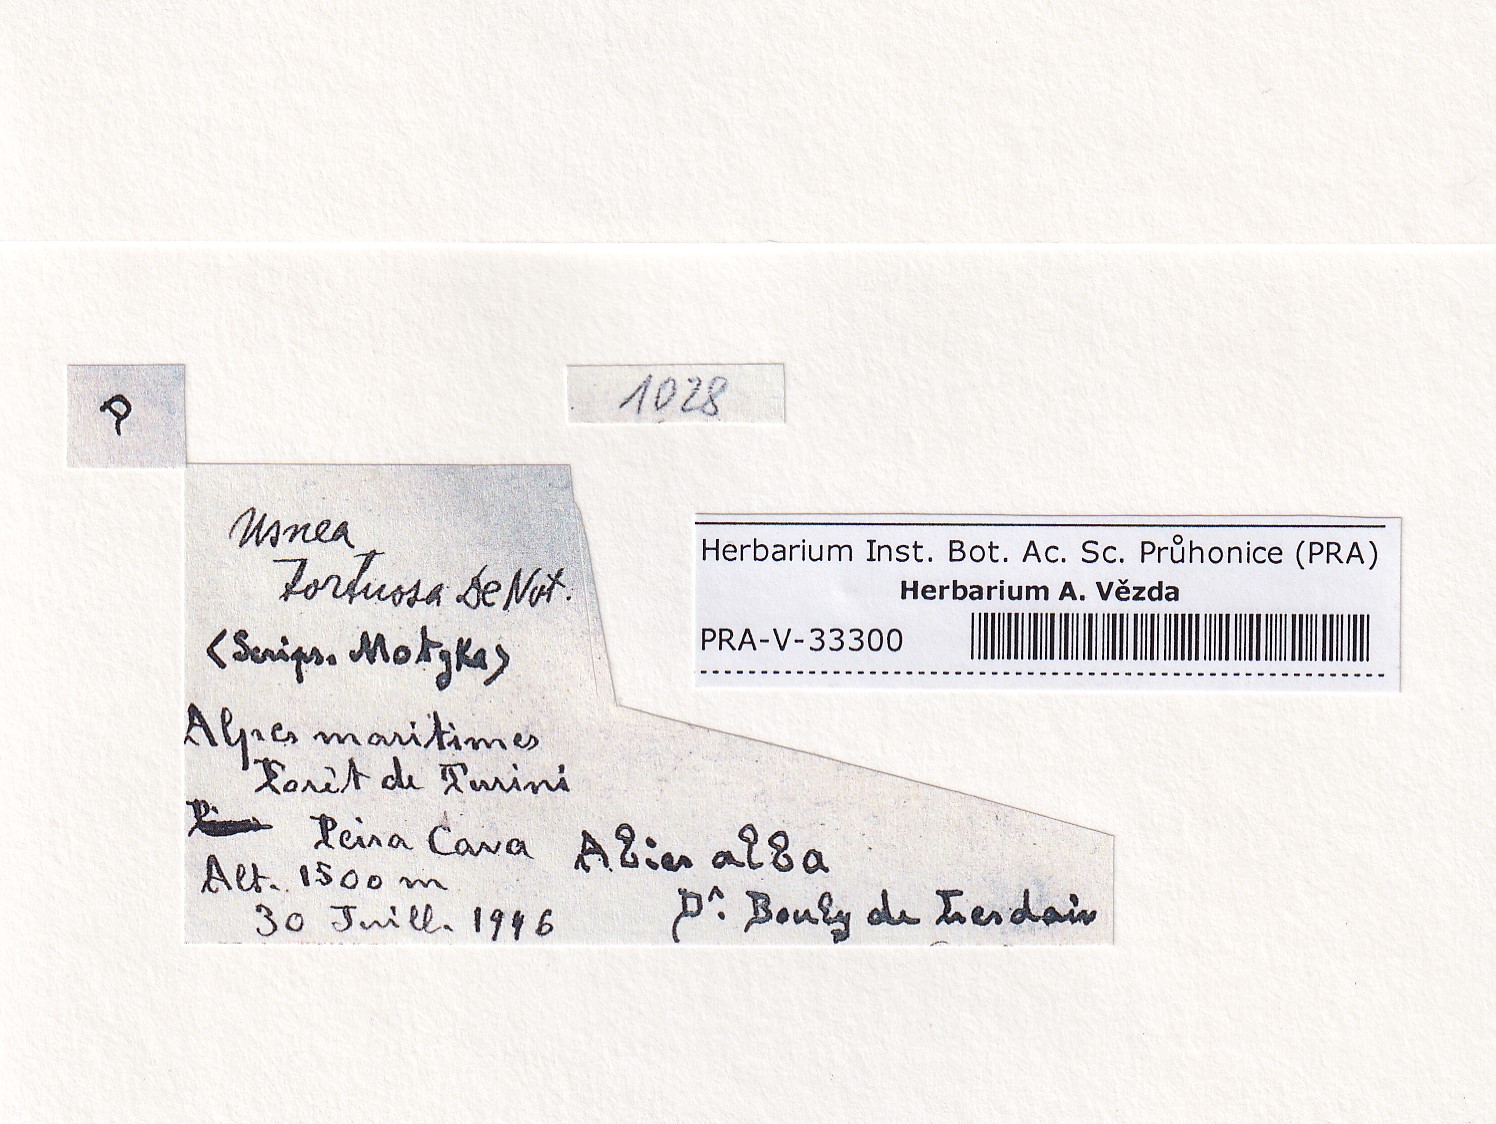 P
1028
Usnea
tortuosa DeNot.
<Scrips. Motyka>
Alpes maritimes
Forèt de Turini
Peira Cava
Abies alba
Alt. 1500 m
30 Juill. 1946
Dr. Bouly de Lesdain
Herbarium Inst. Bot. Ac. Sc. Průhonice (PRA)
Herbarium A. Vězda
PRA-V-33300